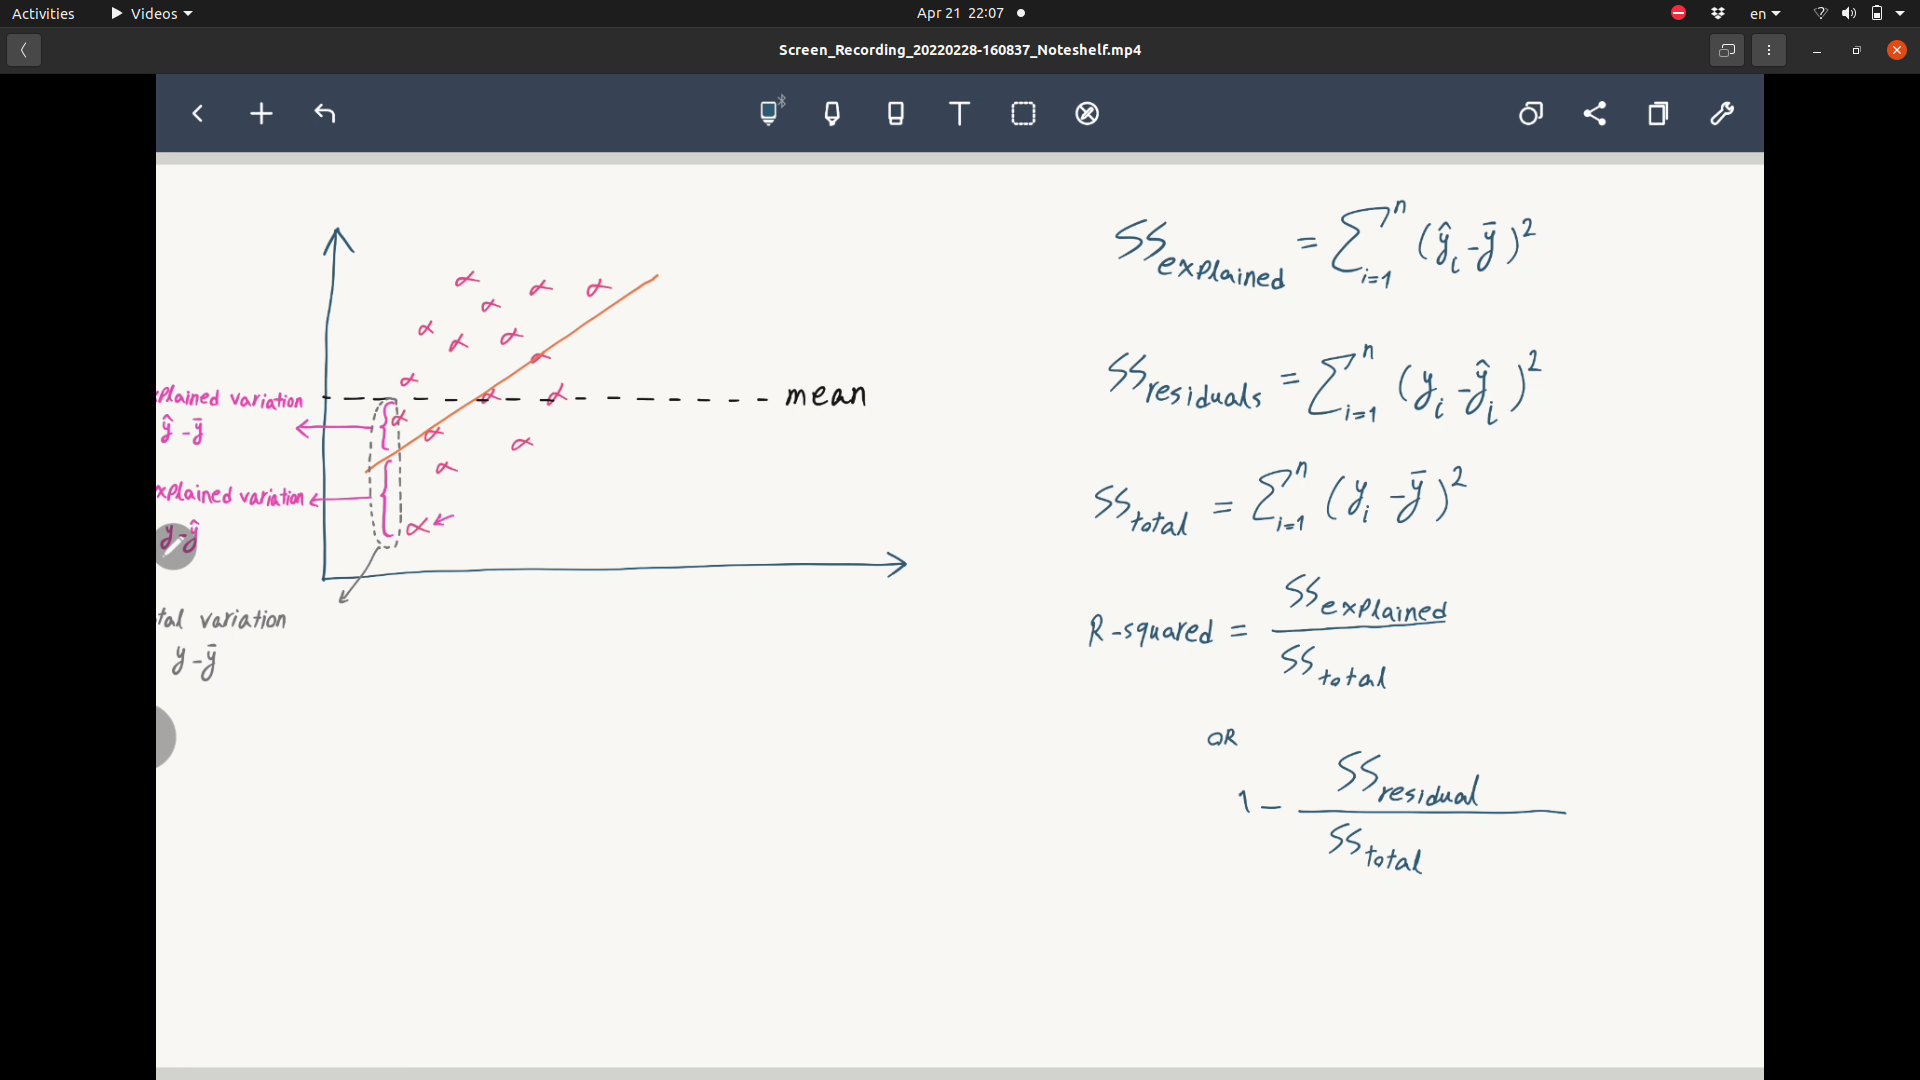 Activities Videos Apr 21 22:07 en
Screen_Recording_20220228-160837_Noteshelf.mp4
T
mean
plained variation
ŷ - ȳ
xplained variation
y - ŷ
tal variation
y - ȳ
SS explained = ∑ i=1 n (ŷi - ȳ)²
SS residuals = ∑ i=1 n (yi - ŷi)²
SS total = ∑ i=1 n (yi - ȳ)²
R-squared = SS explained / SS total
OR
1 - SS residual / SS total